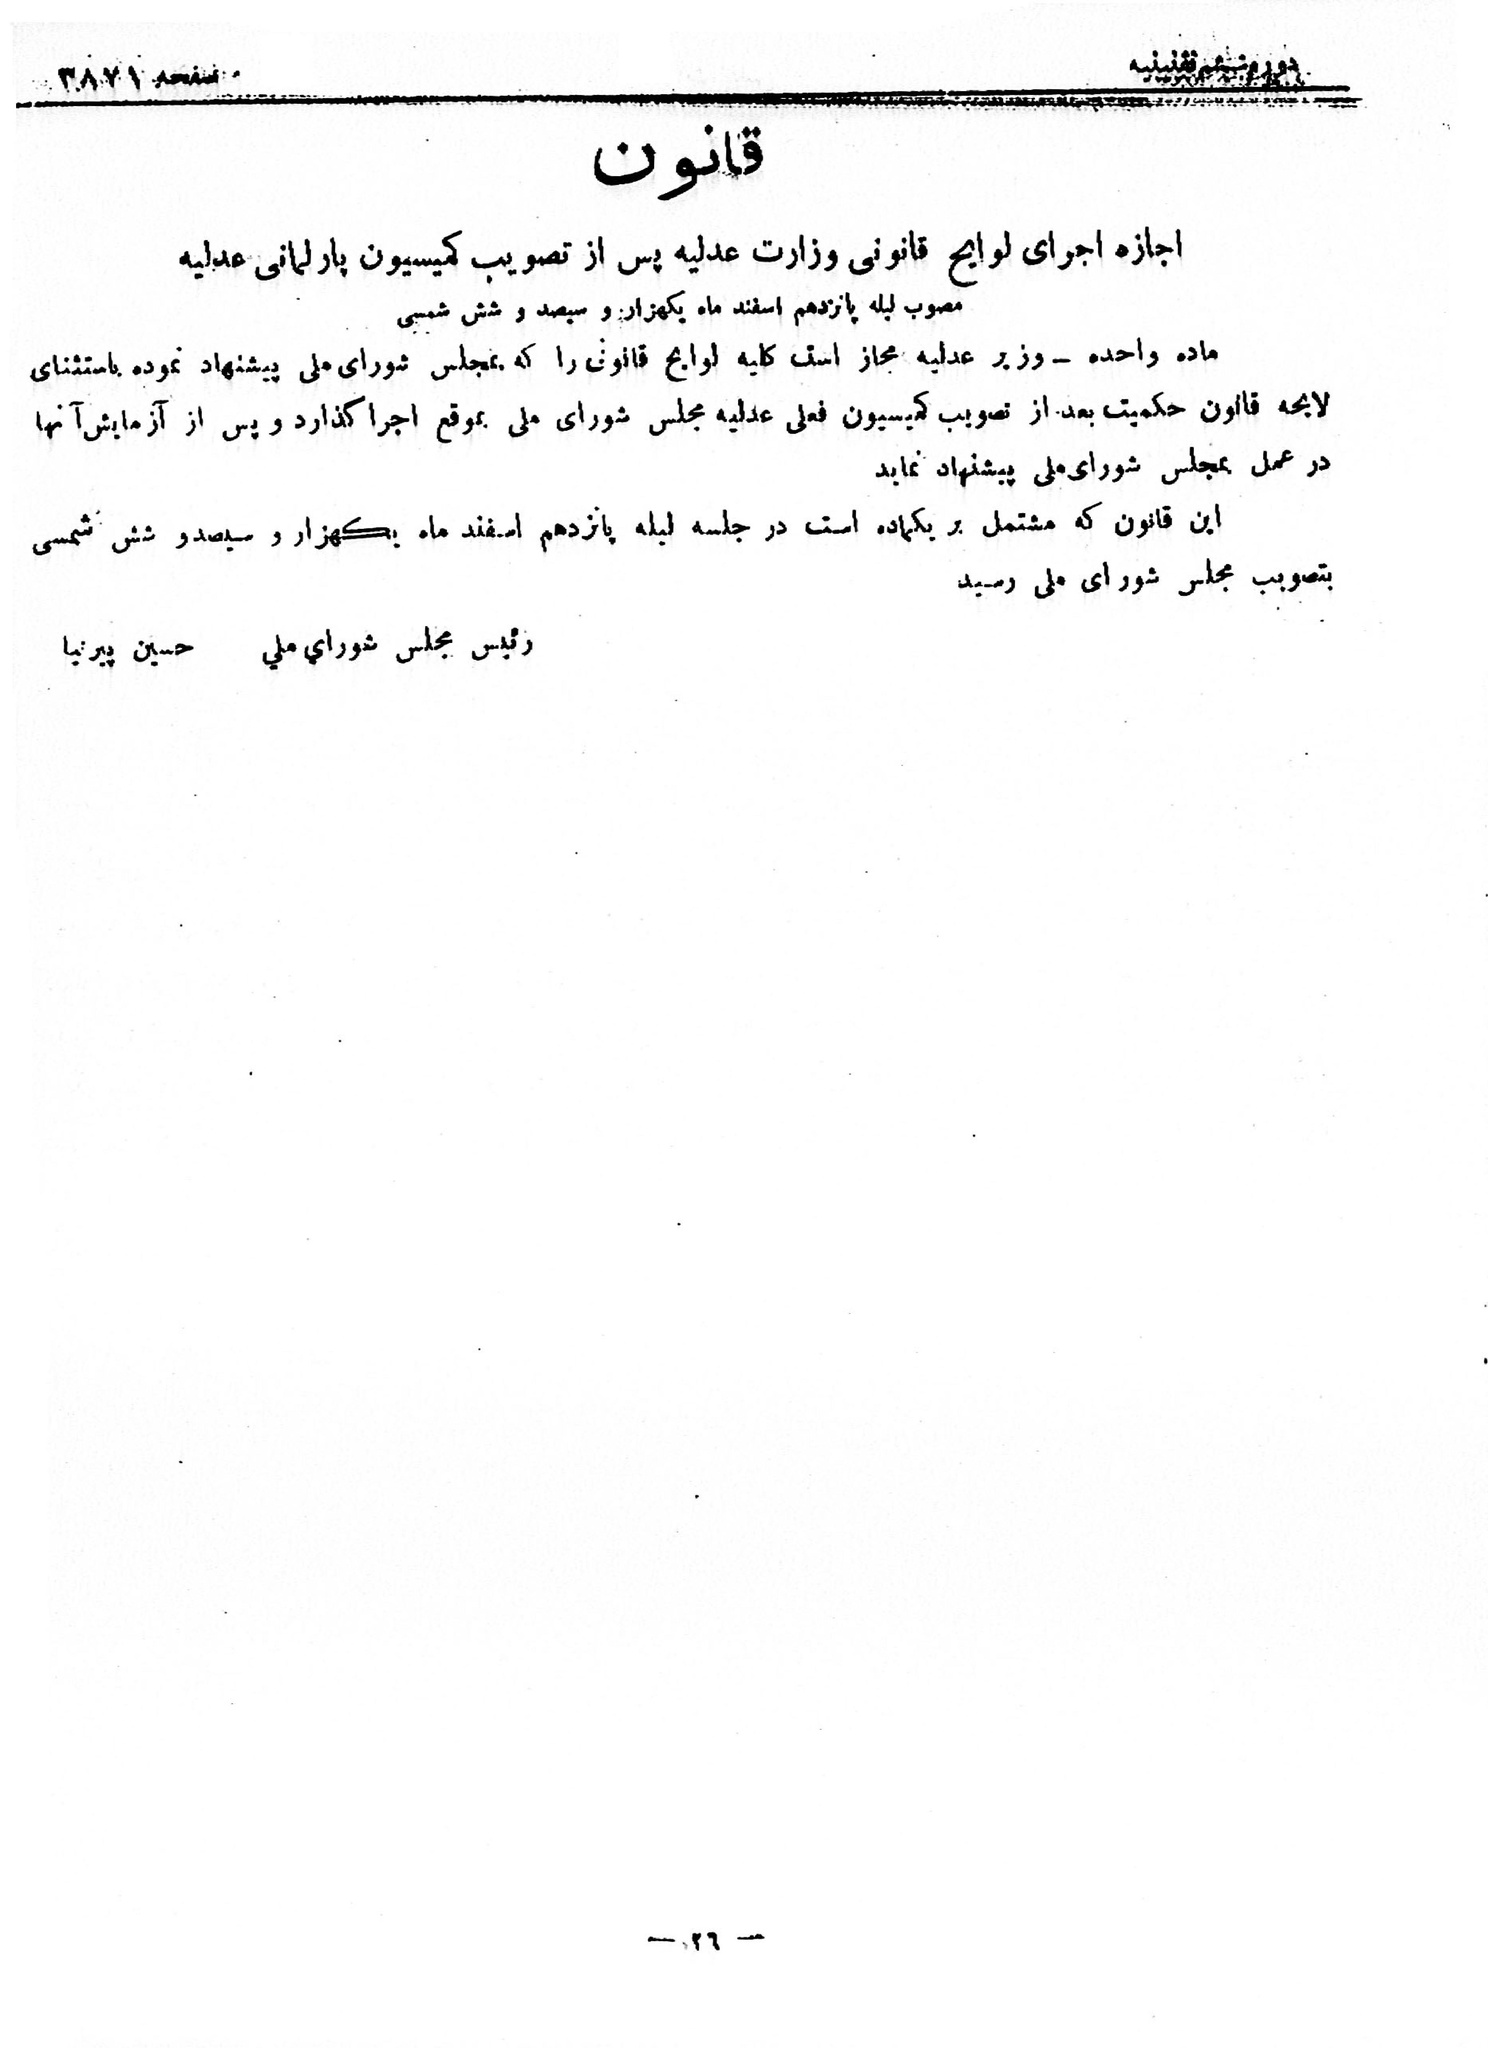 دوره ششم تقنینیه
صفحه ۳۸۷۱
قانون
اجازه اجرای لوایح قانونی وزارت عدلیه پس از تصویب کمیسیون پارلمانی عدلیه
مصوب لیله پانزدهم اسفند ماه یکهزار و سیصد و شش شمسی
ماده واحده ــ وزیر عدلیه مجاز است کلیه لوایح قانونی را که بمجلس شورای ملی پیشنهاد نموده باستثنای
لایحه قانون حکمیت بعد از تصویب کمیسیون فعلی عدلیه مجلس شورای ملی بموقع اجرا گذارد و پس از آزمایش آنها
در عمل بمجلس شورای ملی پیشنهاد نماید
این قانون که مشتمل بر یکماده است در جلسه لیله پانزدهم اسفند ماه یکهزار و سیصد و شش شمسی
بتصویب مجلس شورای ملی رسید
رئیس مجلس شورای ملی حسین پیرنیا
— ۲۶ —